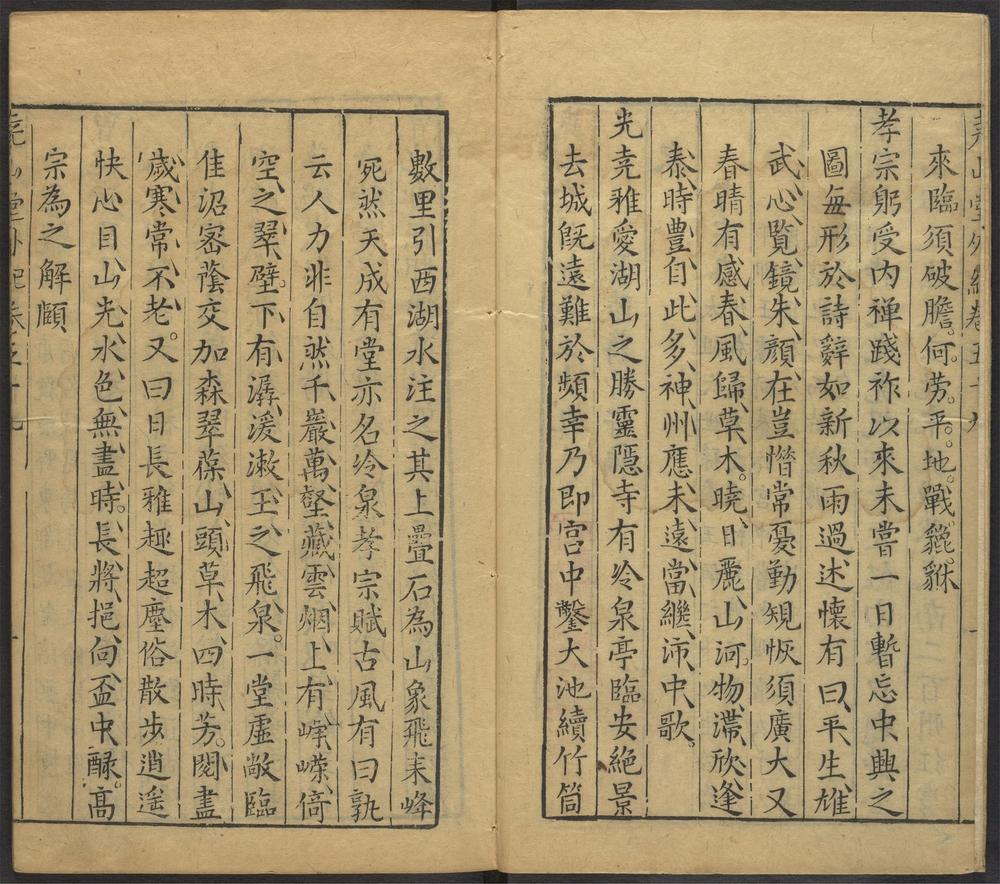 堯山堂外紀卷五十九
來臨須破膽。何。勞。平。地。戰。貔。貅
孝宗躬受內禅踐祚以來未嘗一日暫忘中興之
圖每形於詩辭如新秋雨過述懷有曰平、生、雄
武、心、覧、鏡、朱、顔、在豈惜常憂勤䂓恢須廣大又
春晴有感春風歸草木。曉、日、麗、山、河。物、滯、欣、逢
泰、時、豊、自、此、多、神、州、應、未、遠、當、繼、沛、中、歌。
光堯雅愛湖山之勝靈隱寺有冷泉亭臨安絕景
去城旣遠難於頻幸乃即宫中鑿大池續竹筒
數里引西湖水注之其上疊石為山象飛來峰
宛然天成有堂亦名冷泉孝宗賦古風有曰孰
云人力非自然千、巖、萬、壑、藏、雲、烟、上、有、崢、嶸、倚
空、之、翠、壁。下、有、潺、湲、漱、玉、之、飛、泉。一堂虛敞臨
佳沼密䕃交加森翠葆、山、頭、草、木、四、時、芳。閱、盡
歲、寒、常、不、老。又曰日長雅趣超塵俗散步逍遥
快心目、山、光、水、色、無、盡、時。長、將、挹、向、盃、中、醁。高
宗為之解頤
堯山堂外紀卷五十九
一